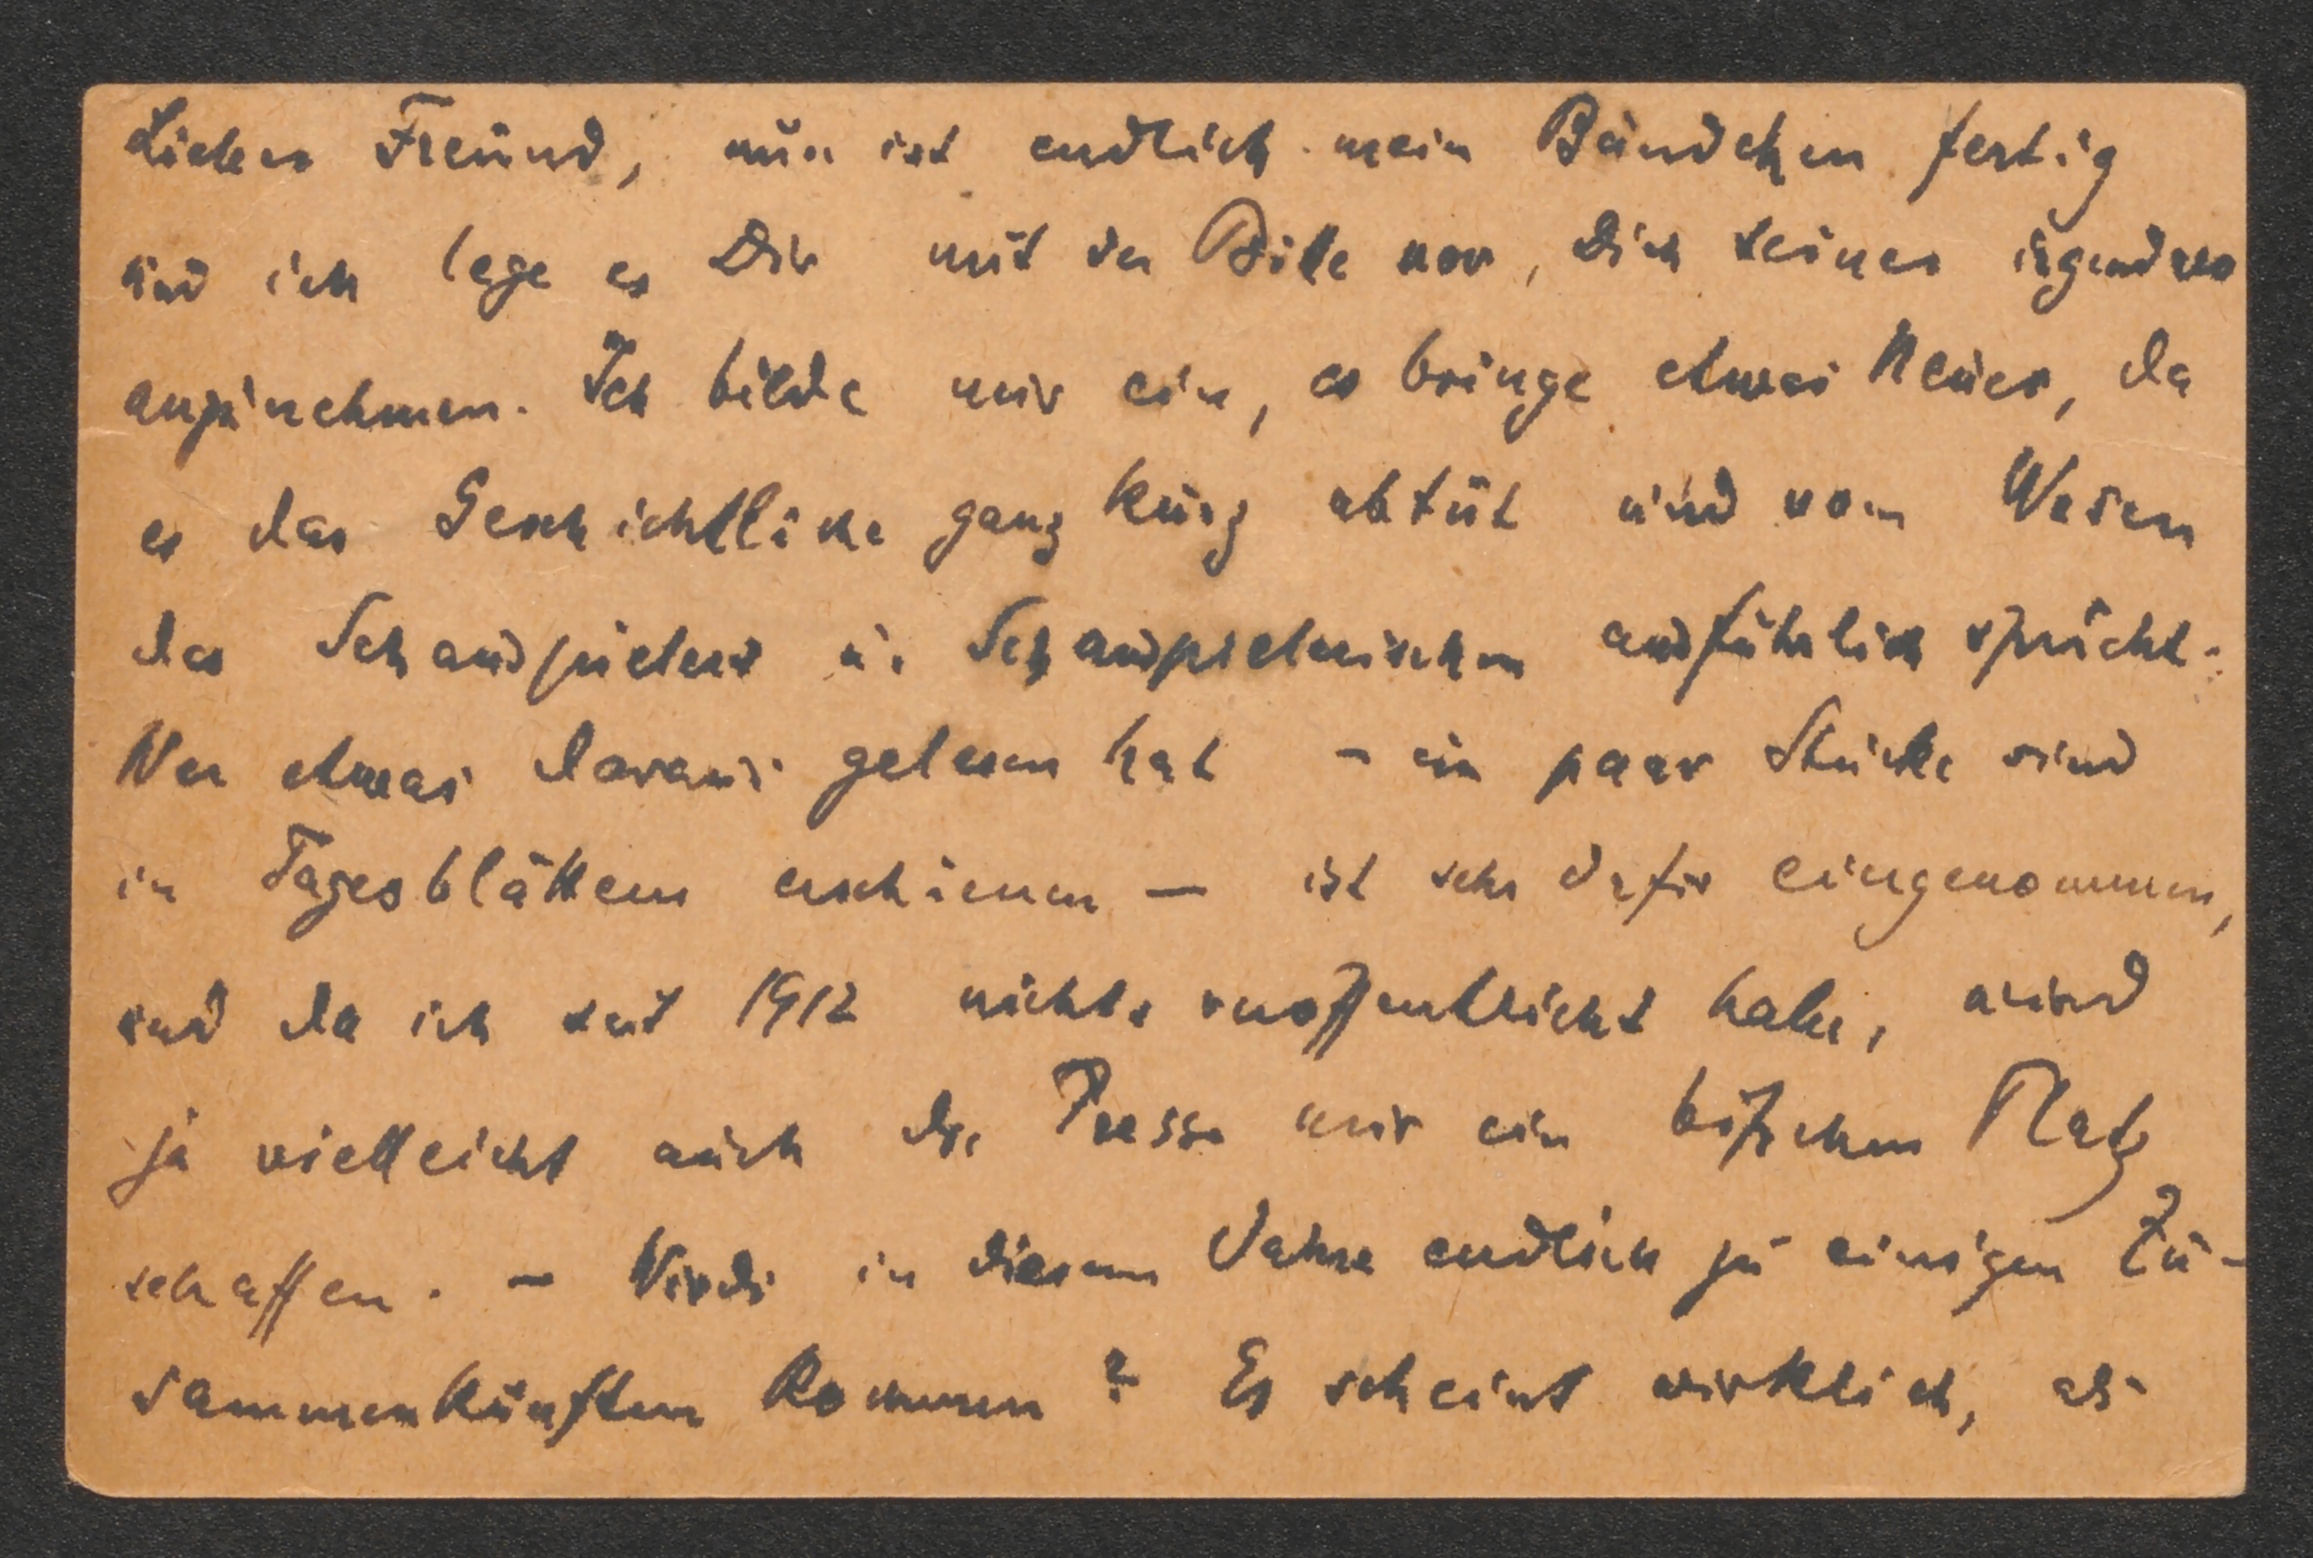 Lieber Freund, nun ist endlich mein Bändchen fertig
und ich lege es Dir mit der Bitte vor, Dich seiner irgendwo
anzunehmen. Ich bilde mir ein, es bringe etwas Neues, da
es das Geschichtliche ganz kurz abtut und vom Wesen
des Schauspielers u. Schauspielerischen ausführlich spricht.
Wer etwas daraus gelesen hat – ein paar Stücke sind
in Tagesblättern erschienen – ist sehr dafür eingenommen,
und da ich seit 1912 nichts veröffentlicht habe, wird
ja vielleicht auch die Presse mir ein bißchen Platz
schaffen. – Wirds in diesem Jahre endlich zu einigen Zu-
sammenkünften kommen? Es scheint wirklich, als